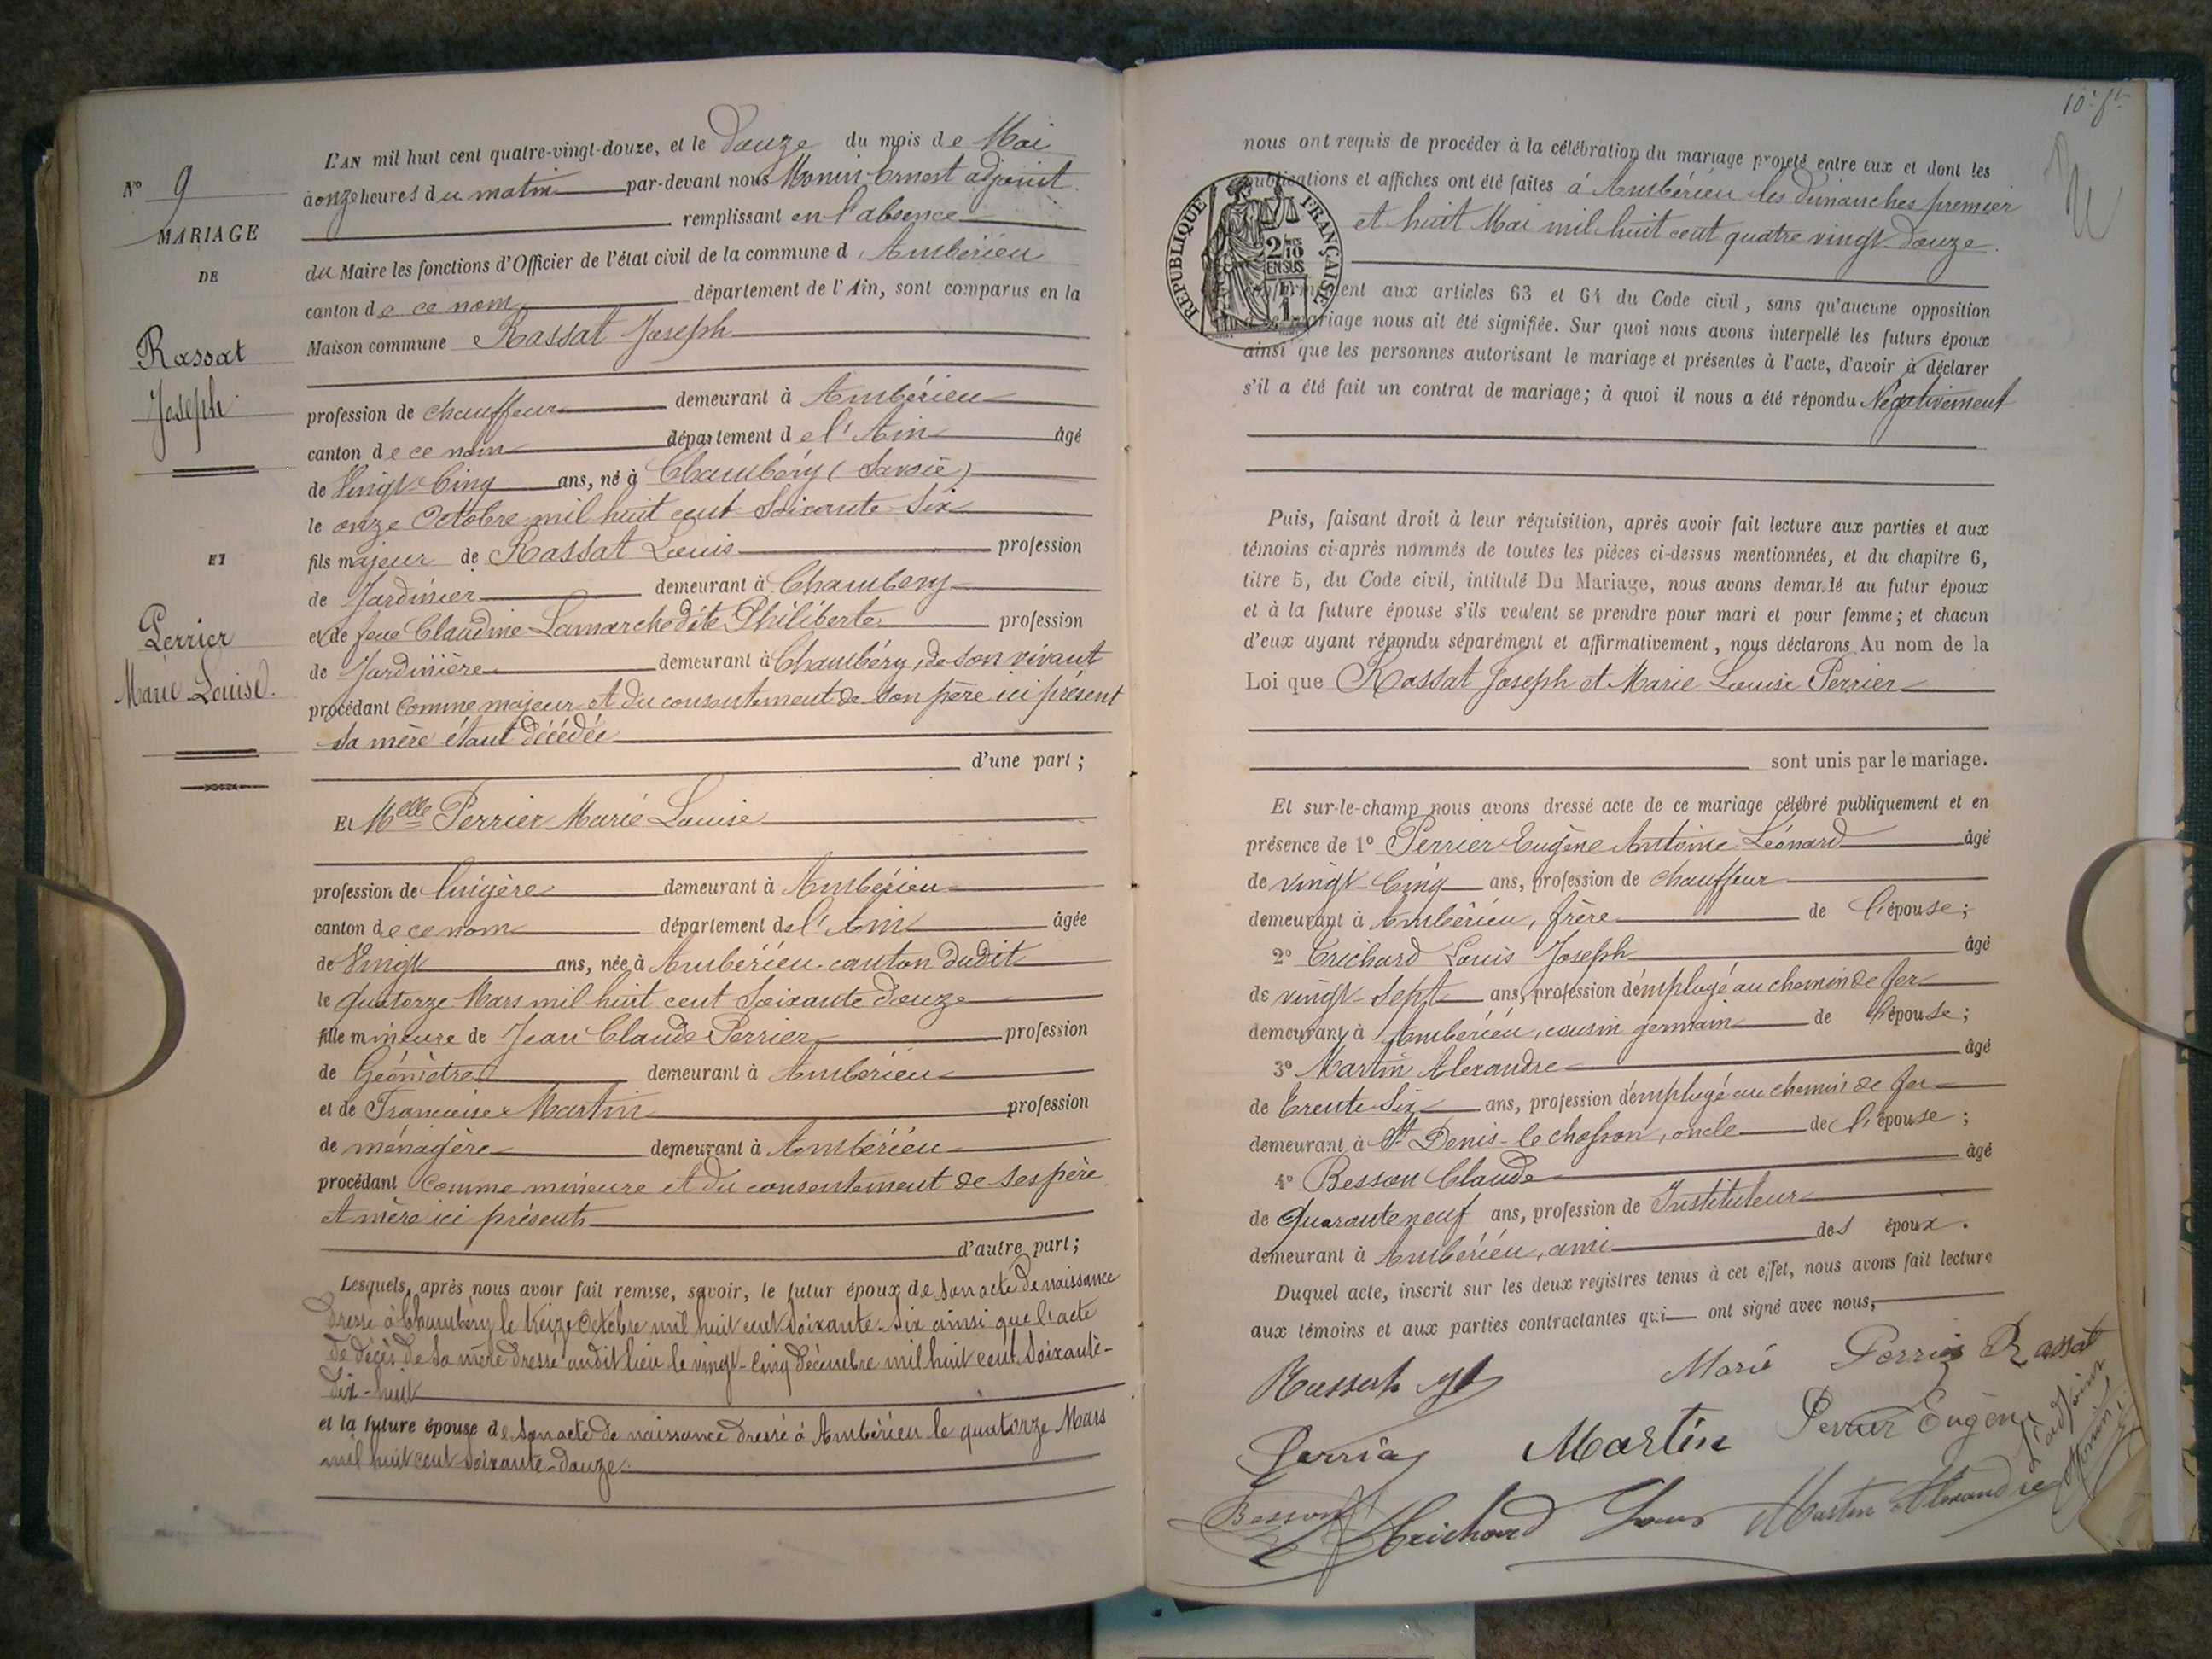 L'AN mil huit cent quatre-vingt-douze, et le Douze du mois de Mai
à onze heures du matin par-devant nous Monin Ernest adjoint
remplissant en l'absence
du Maire les fonctions d'Officier de l'état civil de la commune d'Ambérieu
canton de ce nom département de l'Ain, sont comparus en la
Maison commune Rassat Joseph
profession de chauffeur demeurant à Ambérieu
canton de ce nom département de l'Ain âgé
de Vingt-Cinq ans, né à Chambéry (Savoie)
le onze Octobre mil huit cent Soixante-Six
fils majeur de Rassat Louis profession
de Jardinier demeurant à Chambery
et de feue Claudine Lamarche dite Philiberte profession
de Jardinière demeurant à Chambéry, de son vivant
procédant Comme majeur et du consentement de son père ici présent
sa mère étant décédée
d'une part;
Et Melle Perrier Marie Louise
profession de lingère demeurant à Ambérieu
canton de ce nom département de l'Ain âgée
de Vingt ans, née à Ambérieu canton dudit
le quatorze Mars mil huit cent Soixante douze
fille mineure de Jean Claude Perrier profession
de Géomètre demeurant à Ambérieu
et de Françoise Martin profession
de ménagère demeurant à Ambérieu
procédant Comme mineure et du consentement de ses père
et mère ici présents
d'autre part;
Lesquels, après nous avoir fait remise, savoir, le futur époux de son acte de naissance
Dressé à Chambéry le treize Octobre mil huit cent Soixante-Six ainsi que l'acte
de décès de sa mère dressé audit lieu le vingt-cinq Décembre mil huit cent Soixante-
Dix-huit
et la future épouse de son acte de naissance dressé à Ambérieu le quatorze Mars
mil huit cent soixante-douze.
N° 9
MARIAGE
DE
Rassat
Joseph
ET
Perrier
Marie Louise.
nous ont requis de procéder à la célébration du mariage projeté entre eux et dont les
publications et affiches ont été faites à Ambérieu les dimanches premier
et huit Mai mil huit cent quatre vingt douze.
RÉPUBLIQUE FRANÇAISE
2/10
EN SUS
aux articles 63 et 64 du Code civil, sans qu'aucune opposition
mariage nous ait été signifiée. Sur quoi nous avons interpellé les futurs époux
ainsi que les personnes autorisant le mariage et présentes à l'acte, d'avoir à déclarer
s'il a été fait un contrat de mariage; à quoi il nous a été répondu Négativement
Puis, faisant droit à leur réquisition, après avoir fait lecture aux parties et aux
témoins ci-après nommés de toutes les pièces ci-dessus mentionnées, et du chapitre 6,
titre 5, du Code civil, intitulé Du Mariage, nous avons demandé au futur époux
et à la future épouse s'ils veulent se prendre pour mari et pour femme; et chacun
d'eux ayant répondu séparément et affirmativement, nous déclarons Au nom de la
Loi que Rassat Joseph et Marie Louise Perrier
sont unis par le mariage.
Et sur-le-champ nous avons dressé acte de ce mariage célébré publiquement et en
présence de 1° Perrier Eugène Antoine Léonard âgé
de vingt-Cinq ans, profession de chauffeur
demeurant à Ambérieu, frère de l'épouse;
2° Trichard Louis Joseph âgé
de vingt-Sept ans, profession d'employé au chemin de fer
demeurant à Ambérieu, cousin germain de l'épouse;
3° Martin Alexandre âgé
de Trente-Six ans, profession d'employé au chemin de fer
demeurant à St Denis-le chosson, oncle de l'épouse;
4° Besson Claude âgé
de Quarante neuf ans, profession de Instituteur
demeurant à Ambérieu, ami des époux.
Duquel acte, inscrit sur les deux registres tenus à cet effet, nous avons fait lecture
aux témoins et aux parties contractantes qui ont signé avec nous,
Marie Perrier Rassat
Perrier Martin Perrier Eugène
L'adjoint
Monin
Besson Trichard Louis Martin Alexandre